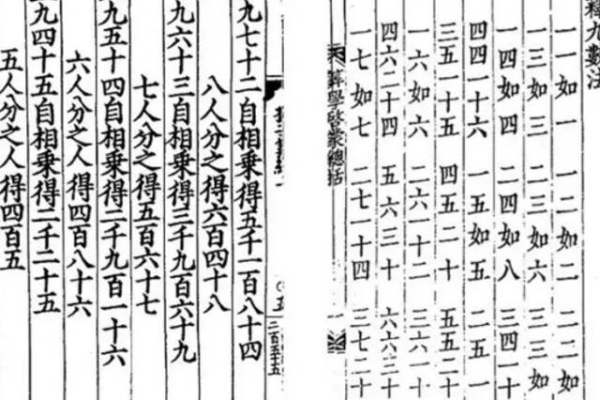 釋九數法
一一如一 一二如二 二二如
一三如三 二三如六 三三如
一四如四 二四如八 三四一十
四四一十六 一五如五 二五一
三五一十五 四五二十 五五二十
一六如六 二六一十二 三六一十
四六二十四 五六三十 六六三十
一七如七 二七一十四 三七二十
算學啓蒙總括
九七十二自相乘得五千一百八十四
八人分之得六百四十八
九六十三自相乘得三千九百六十九
七人分之得五百六十七
九五十四自相乘得二千九百一十六
六人分之人得四百八十六
九四十五自相乘得二千二十五
五人分之人得四百五